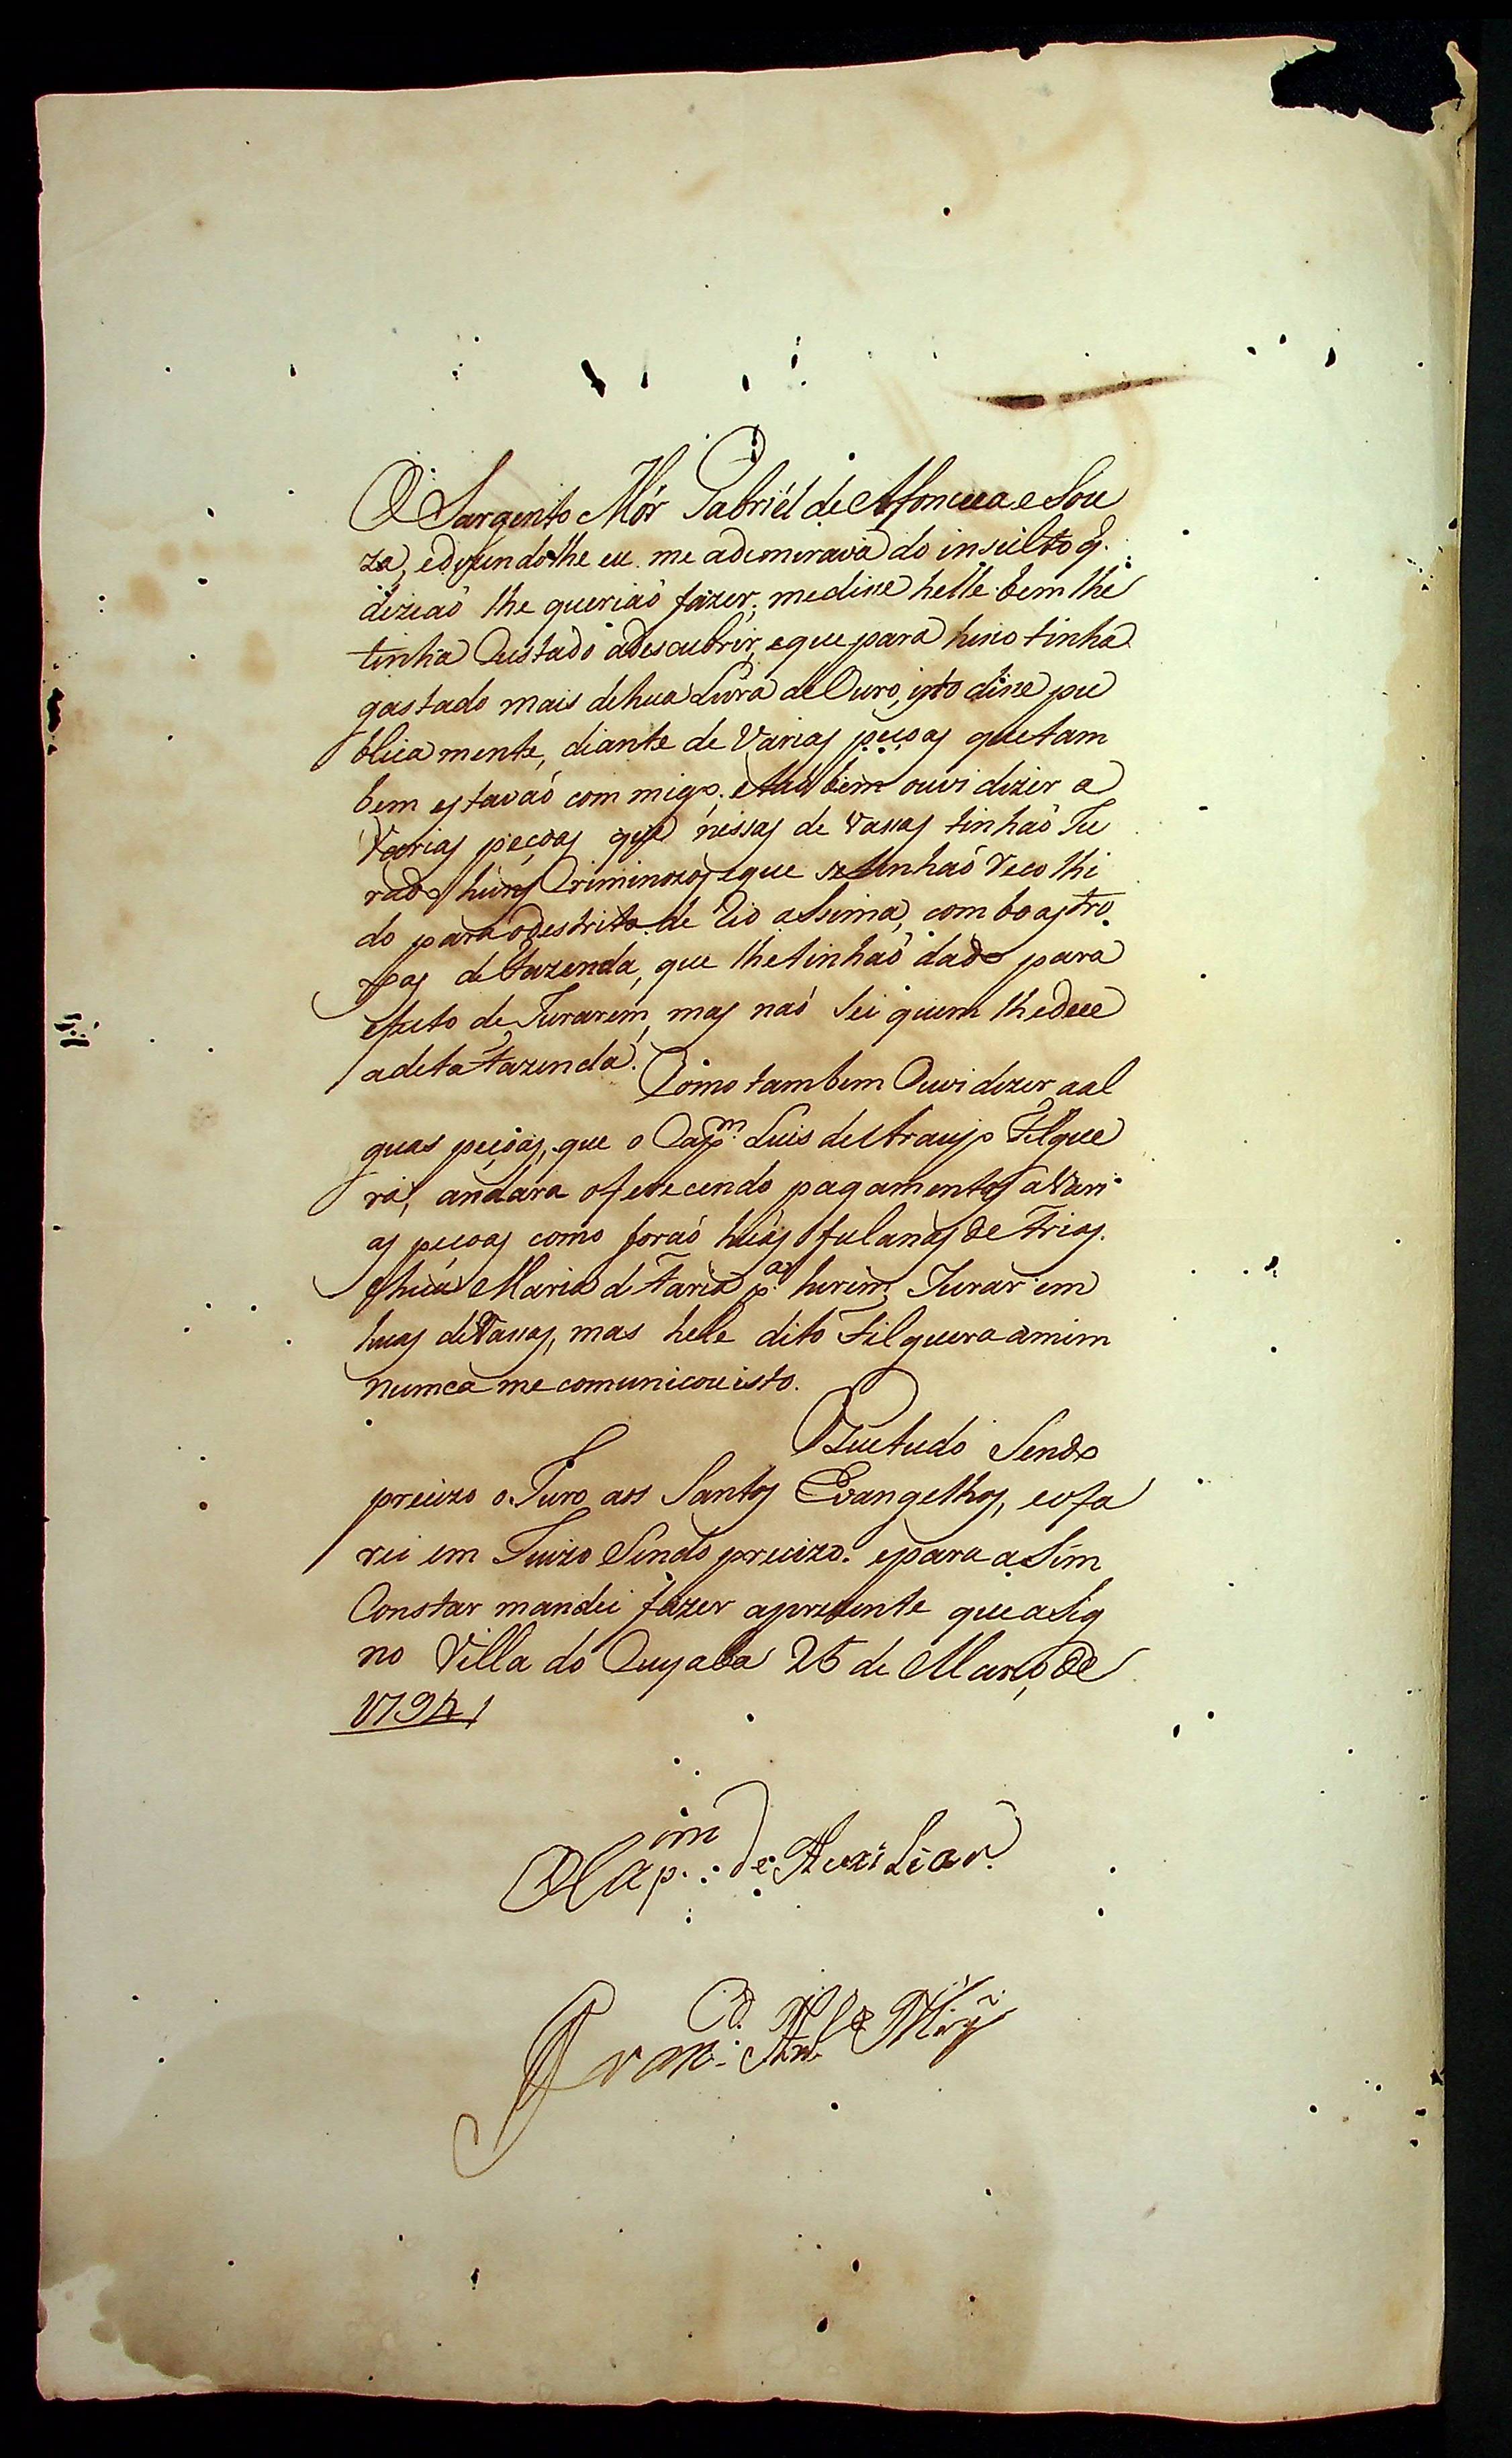 O Sargento Mór Gabriél de Afonceca e Sou
za, edizendolhe eu me ademirava do insulto q̃.
dizeaõ lhe queriaõ fazer, medise helle bem lhe
tinha Custado adescubrir, eque para hiso tinha
gastado mais dehua Livra de Ouro, isto dise pu
blica mente, diante de Varias peçoas quetam
bem estavaõ com migo. etaõ bem ouvi dizer a
Varias peçoas que nessas de Vasas tinhaõ Ju
rado huns Criminozos eque setinhaõ Recolhi
do para odestrito de Rio assima, com boas tro
pas de fazenda, que lhetinhaõ dado para
efeito de Jurarem, mas naõ Sei quem lhedeu
adeta fazenda.
Como tambem Ouvi dizer aal
guas peçoas, que o Capᵐ. Luis de Araujo Filgue
ra, andara oferecendo pagamentos a Vari
as peçoas como foraõ huás fulanas de Frias.
ehua Maria de Faria pᵃ. hirem Jurar em
huas deVasas, mas hele dito Filguera amim
numca me comunicou isto.
Oque tudo Sendo
precizo o Juro aos Santos Evangelhos, eofa
rei em Juizo Sendo precizo. epara aSim
Constar mandei fazer aprezente que aSig
no Villa do Cuyaba 25 de Março de
1794
OCapⁱᵐ. de Auxiliar.
Franᶜᵒ.